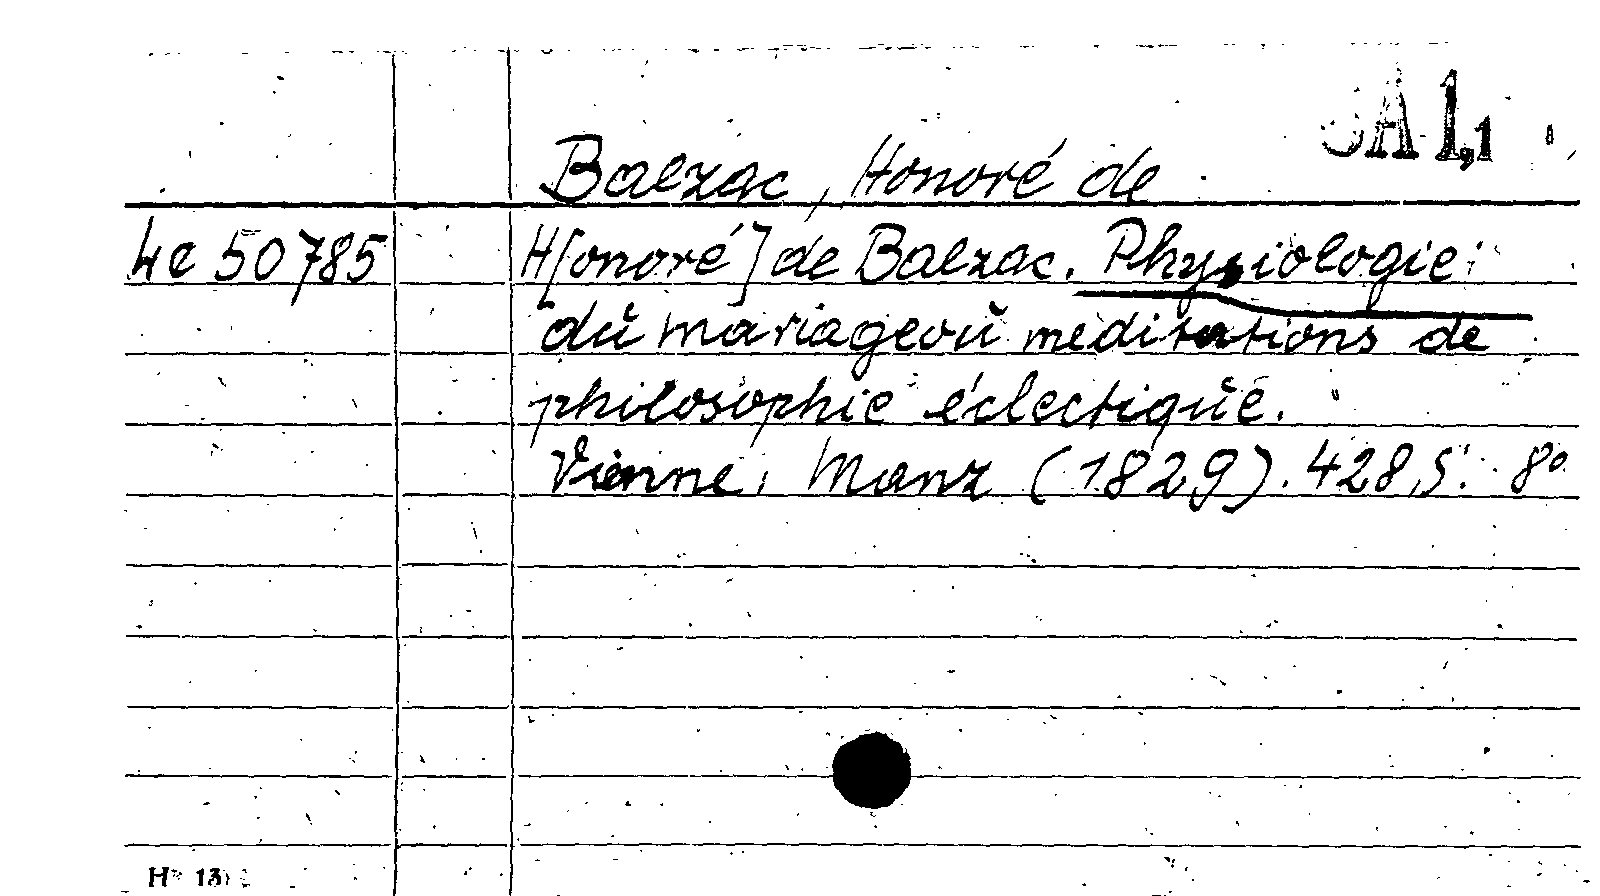 SA 1,1
Balzac, Honoré de
4e 50785 H[onoré] de Balzac. Physiologie
du mariage ou méditations de
philosophie éclectique.
Vienne, Manz (1829). 428 S. 8°